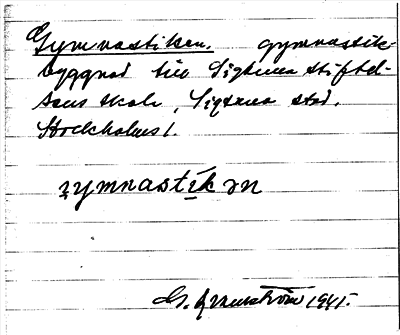 Gymnastiken. gymnastik-
byggnad till Sigtuna stiftel-
sens skola, Sigtuna stad.
Stockholms l.
ȝymnastı̱k ən
G. 1941.